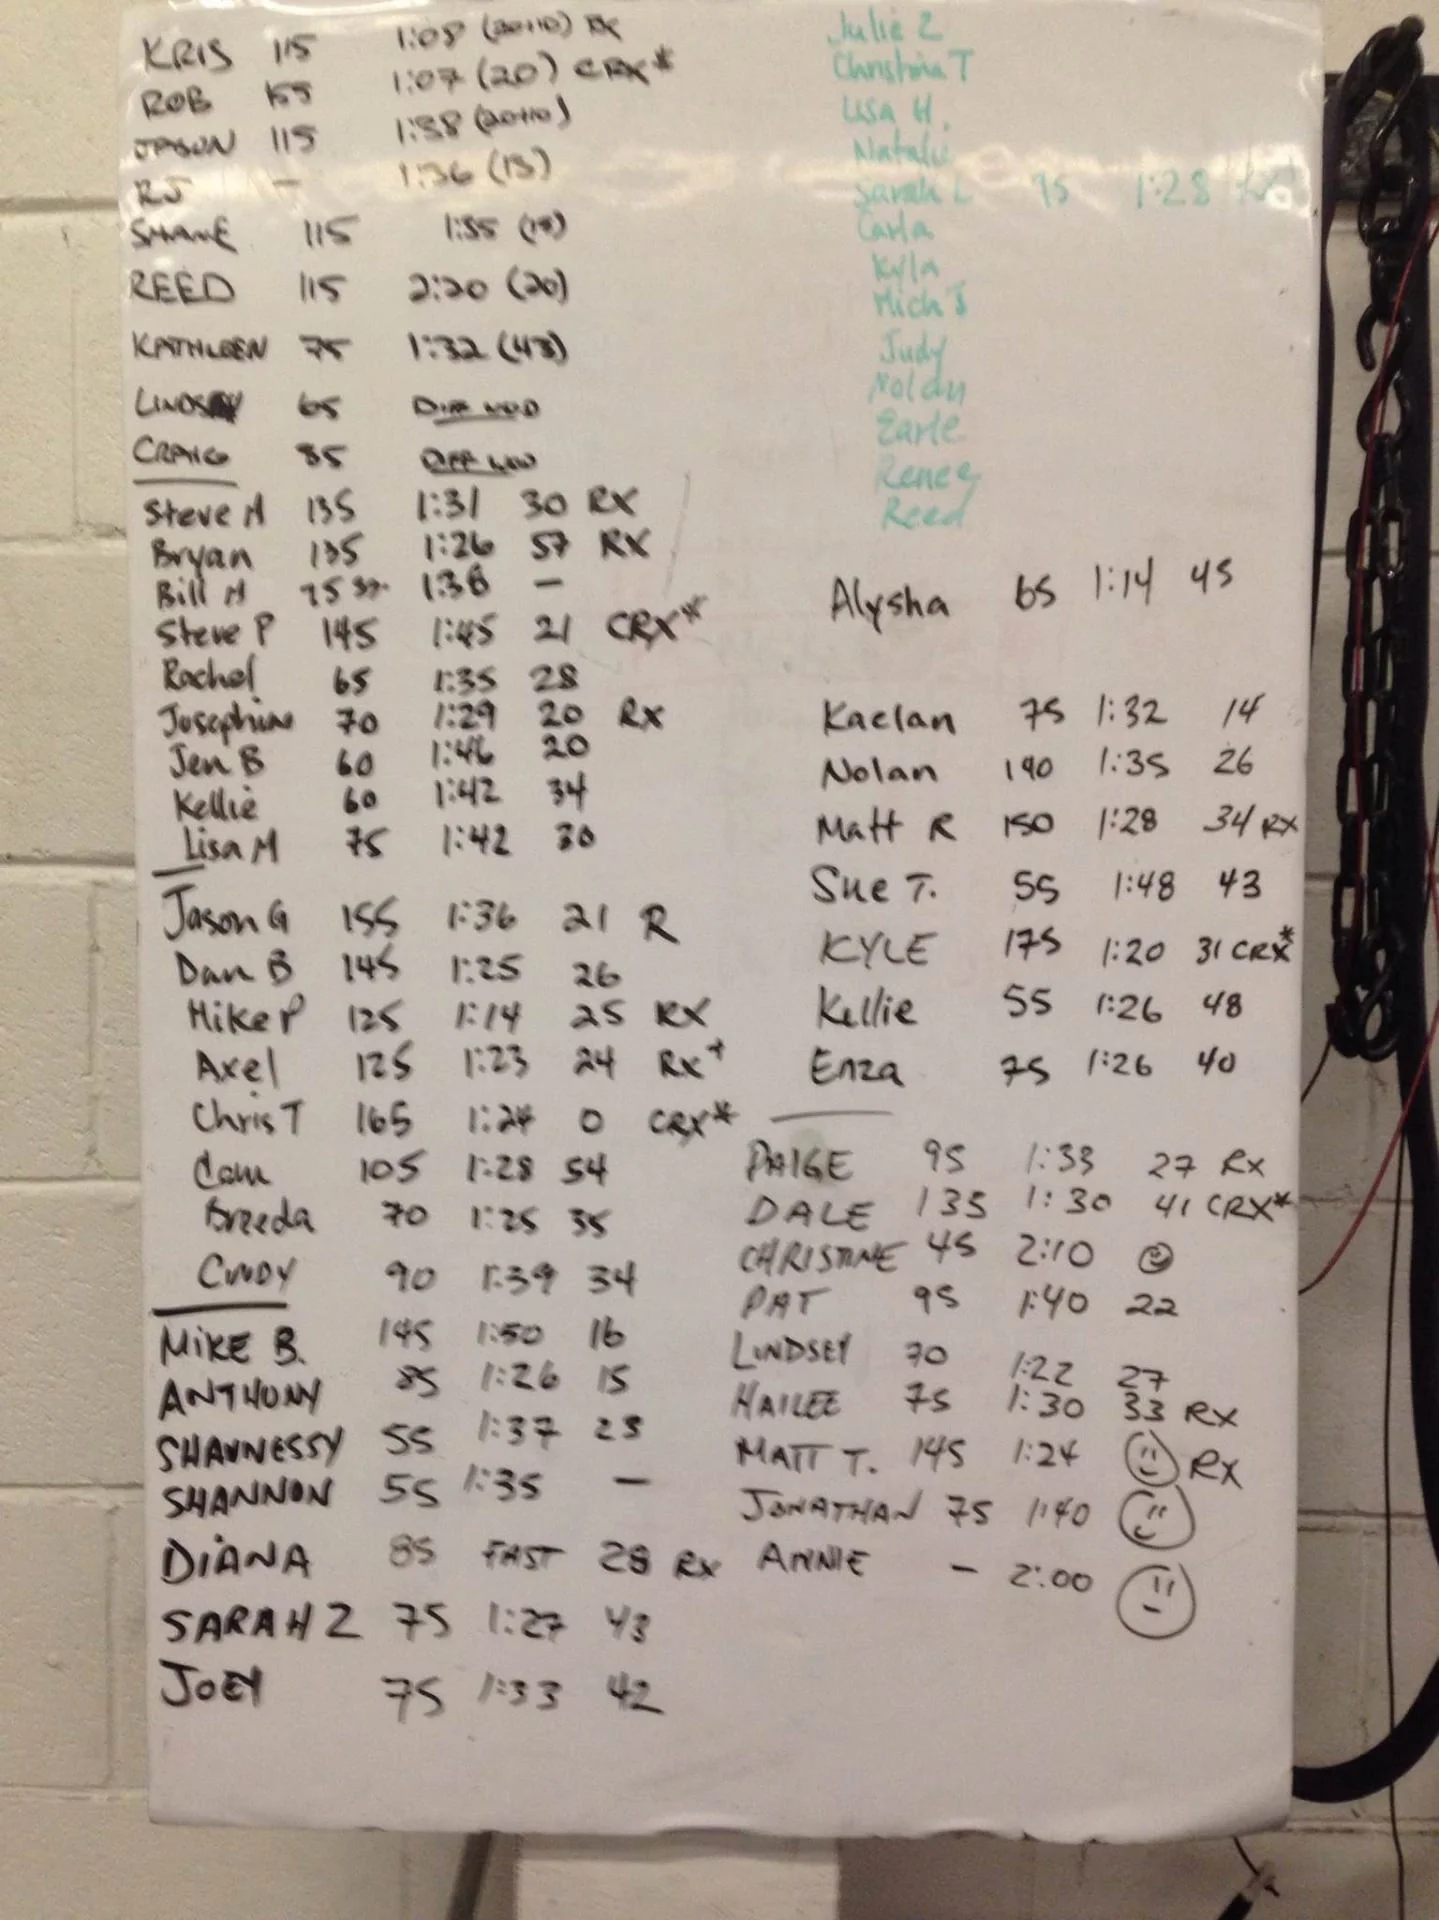 KRIS 115 1:08 (20+10) RX
ROB 155 1:07 (20) CRX*
JASON 115 1:38 (20+10)
RJ - 1:36 (15)
SHANE 115 1:35 (15)
REED 115 2:20 (20)
KATHLEEN 75 1:32 (43)
LINDSEY 65 DIFF WOD
CRAIG 85 DIFF WOD
Steve M 135 1:31 30 RX
Bryan 135 1:26 57 RX
Bill M 1:36 -
Steve P 145 1:45 21 CRX*
Rachel 65 1:35 28
Josephine 70 1:29 20 RX
Jen B 60 1:46 20
Kellie 60 1:42 34
Lisa M 75 1:42 30
Jason G 155 1:36 21 R
Dan B 145 1:25 26
Mike P 125 1:14 25 RX
Axel 125 1:23 24 Rx+
Chris T 165 1:24 0 CRX*
Cam 105 1:28 54
Breeda 70 1:25 35
CINDY 90 1:39 34
MIKE B. 145 1:50 16
ANTHONY 85 1:26 15
SHAUNESSY 55 1:37 23
SHANNON 55 1:35 -
DIANA 85 FAST 28 RX
SARAH Z 75 1:27 43
JOEY 75 1:33 42
Julie Z
Christina T
Lisa H.
Natalie
Sarah L 95 1:28
Carla
Kyla
Mich J
Judy
Nolan
Earle
Renee
Reed
Alysha 65 1:14 45
Kaelan 75 1:32 14
Nolan 190 1:35 26
Matt R 150 1:28 34 RX
Sue T. 55 1:48 43
KYLE 175 1:20 31 CRX*
Kellie 55 1:26 48
Enza 75 1:26 40
PAIGE 95 1:33 27 Rx
DALE 135 1:30 41 CRX*
CHRISTINE 45 2:10
PAT 95 1:40 22
LINDSEY 70 1:22 27
HAILEE 75 1:30 33 RX
MATT T. 145 1:24 RX
JONATHAN 75 1:40
ANNIE - 2:00